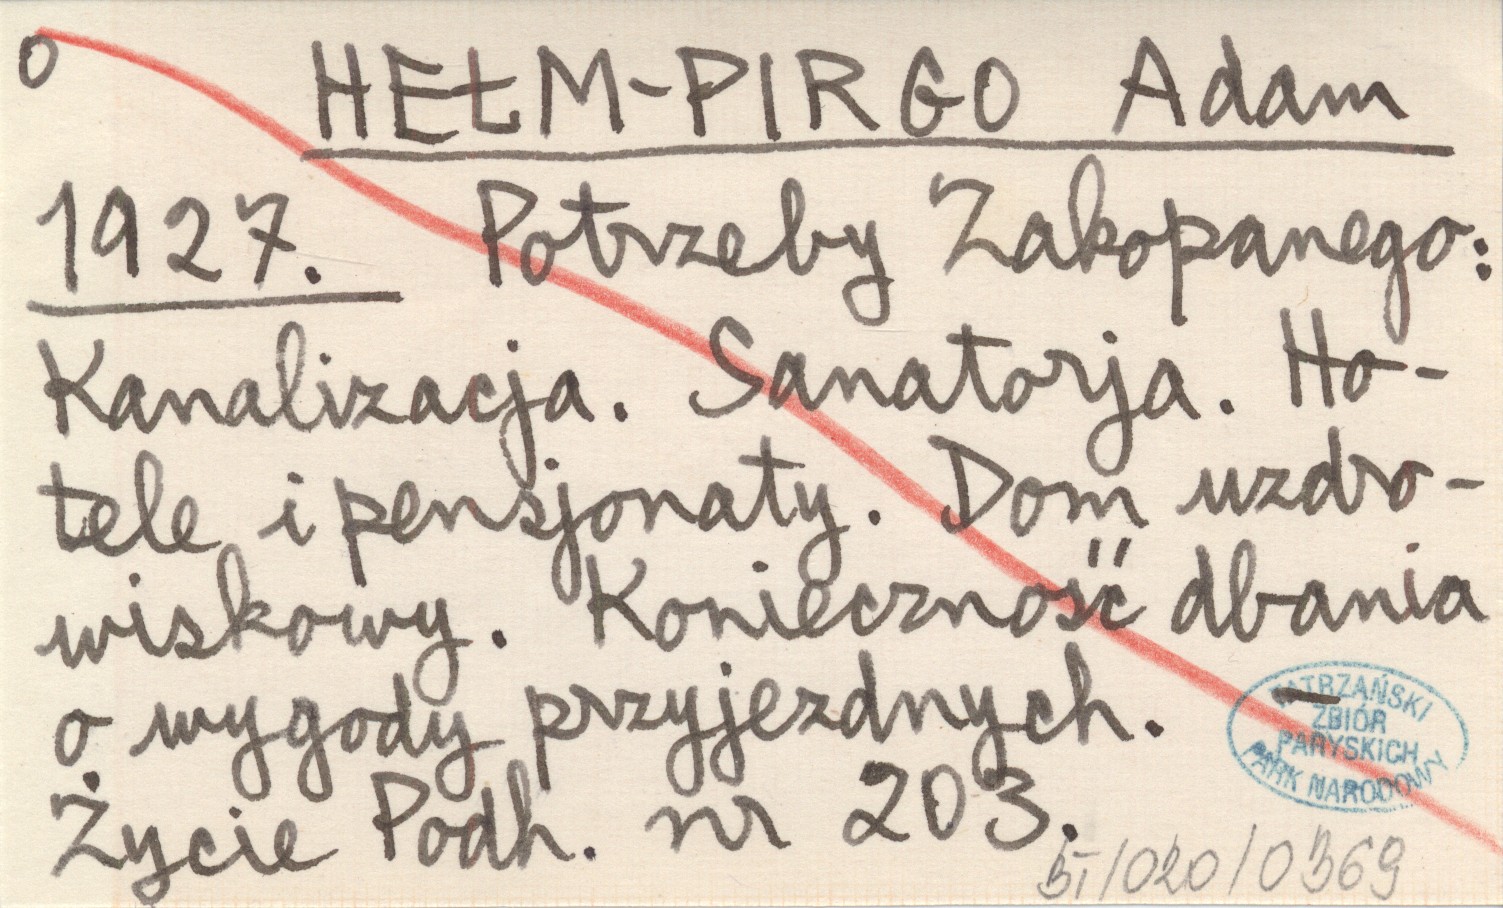 o HEŁM-PIRGO Adam
1927. Potrzeby Zakopanego:
Kanalizacja. Sanatorja. Ho-
tele i pensjonaty. Dom uzdro-
wiskowy. Konieczność dbania
o wygody przyjezdnych. —
Życie Podh. nr 203.
TATRZAŃSKI
ZBIÓR
PARYSKICH
PARK NARODOWY
BT/020/0369